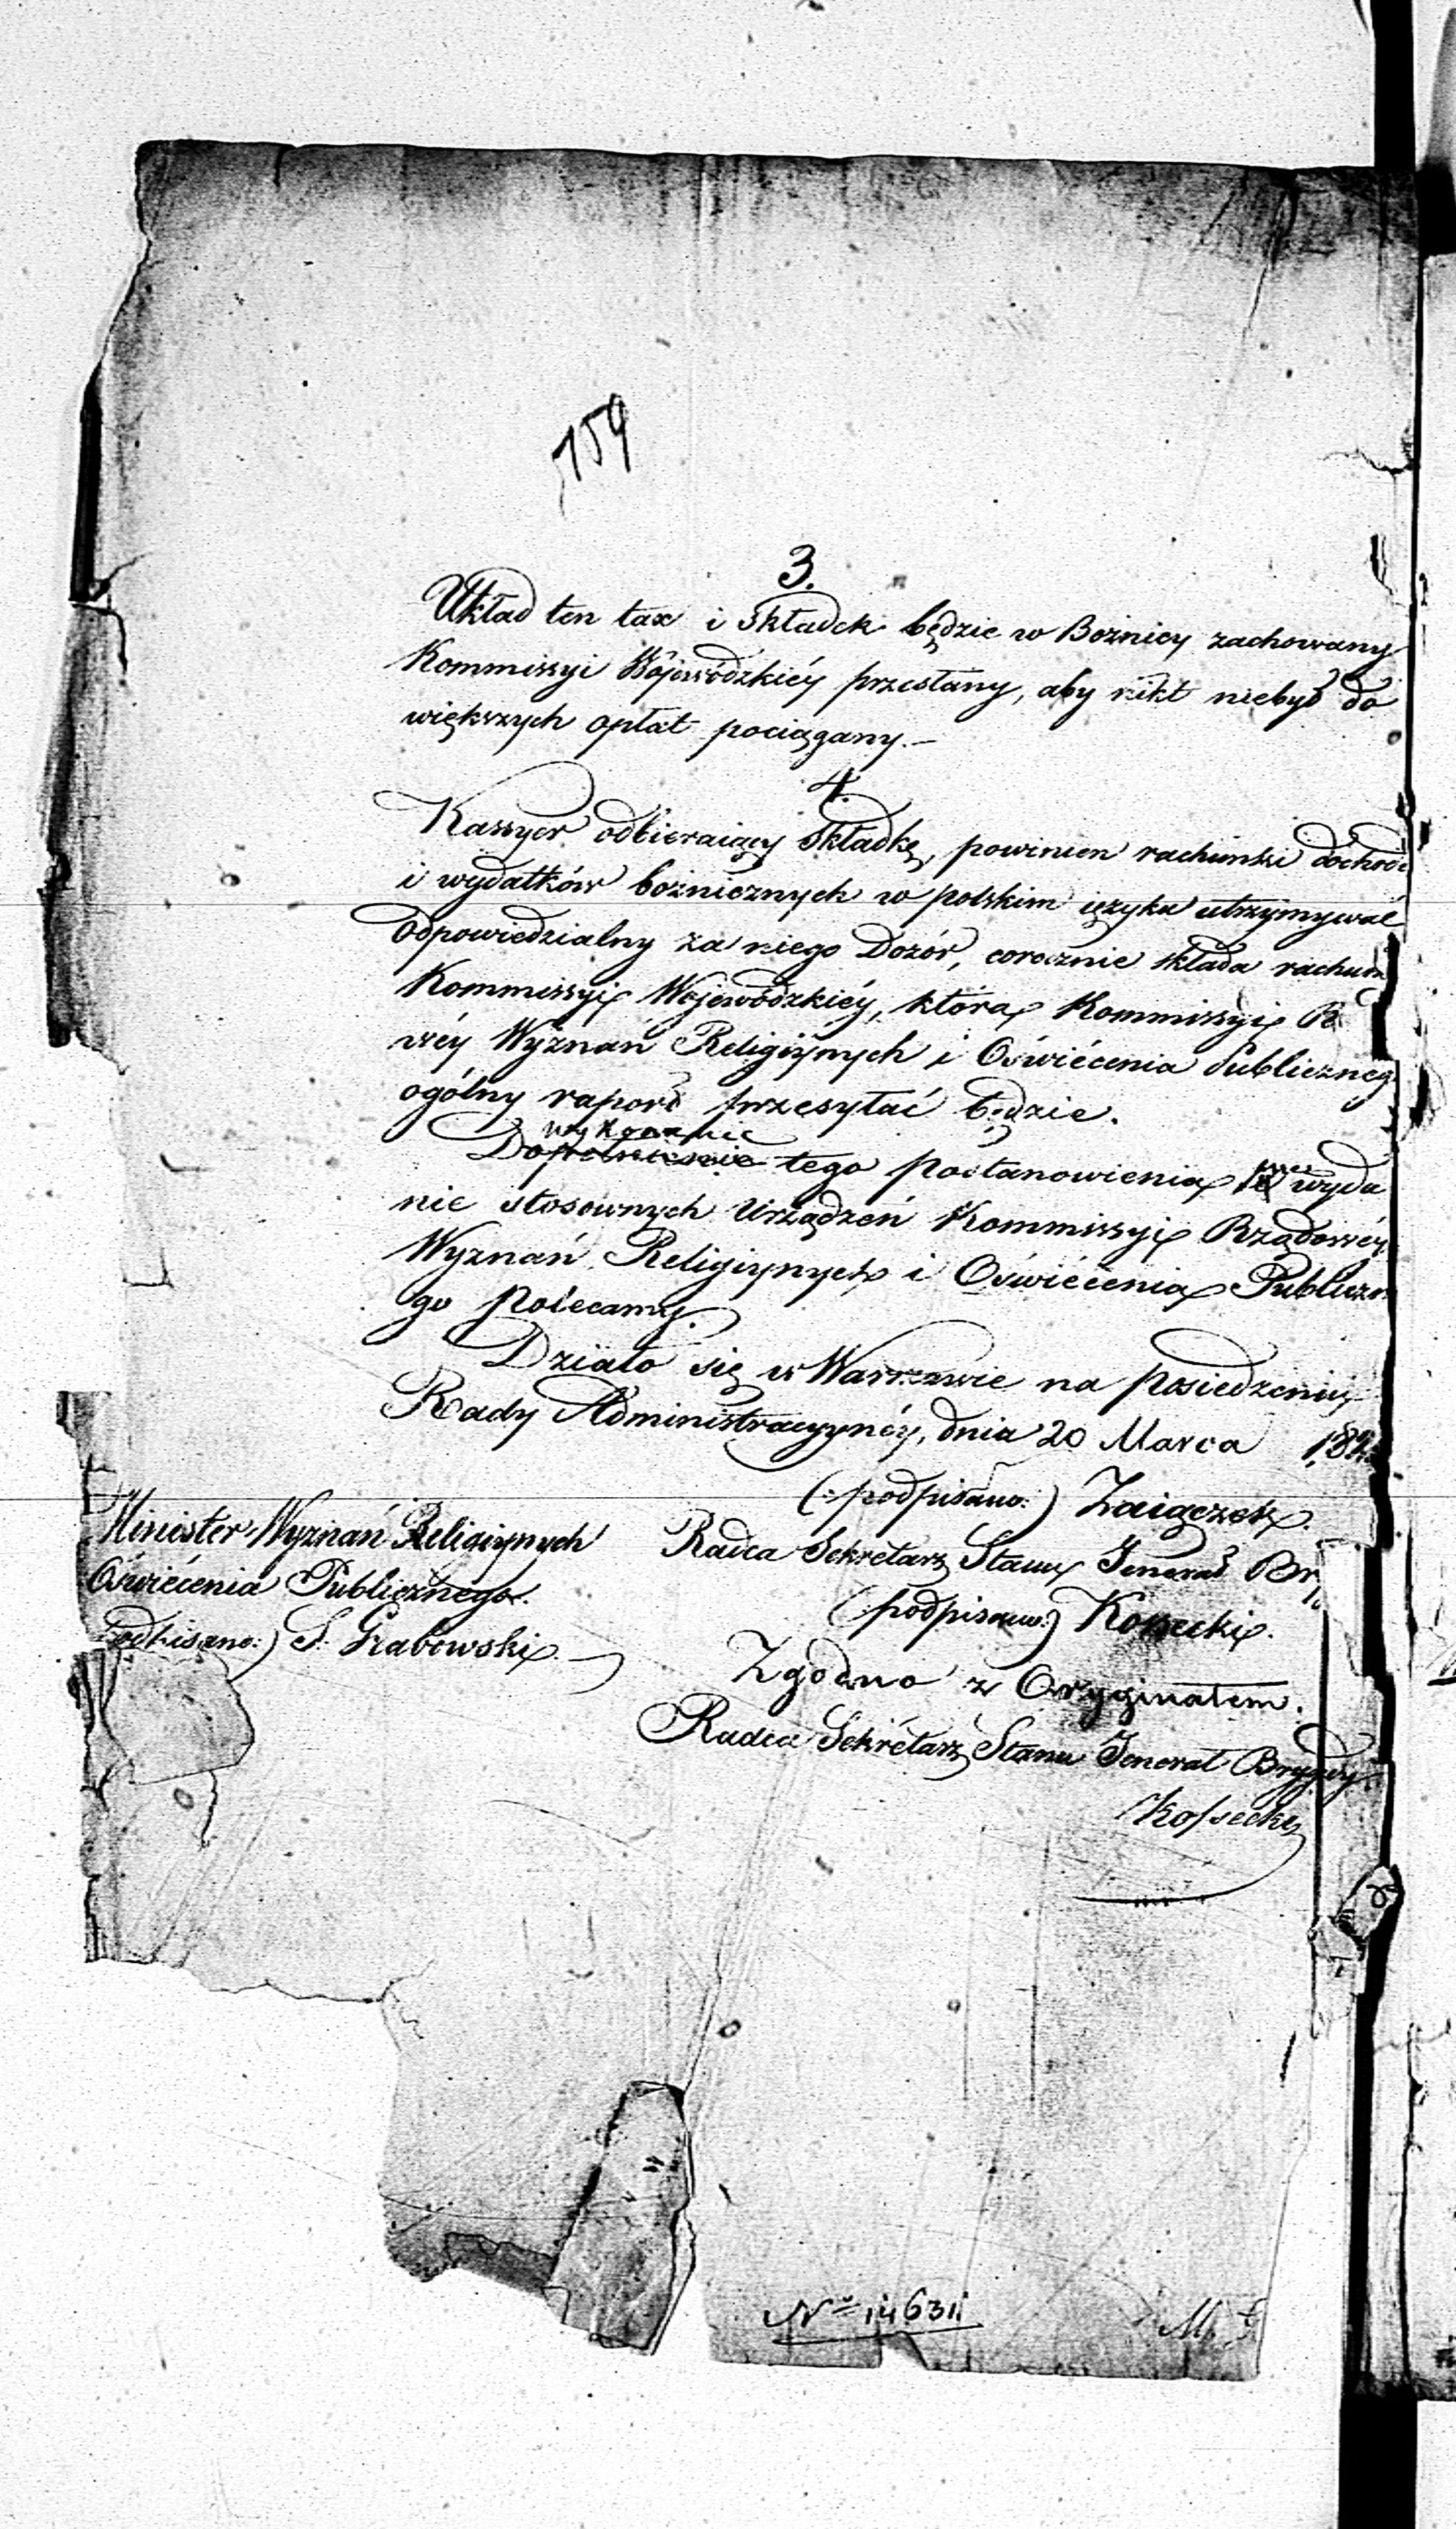 159
3.
Układ ten tax i składek będzie w Bożnicy zachowany
Kommissyi Wojewódzkiéy przesłany, aby nikt niebył do
większych opłat pociągany.—
4.
Kassyer odbieraiący składkę, powinien rachunki dochod
i wydatków bożniczych w polskim ięzyku utrzymywać
Odpowiedzialny za niego Dozór, corocznie składa rachun
Kommissyi Wojewódzkiéy, która Kommissyi R
wéy Wyznań Religiynych i Oświécenia Publiczneg
ogólny raport przesyłać będzie.
wykonanie
Dopełnienie tego postanowienia wyda
nie stosownych Urządzeń Kommissyi Rządowéy
Wyznań Religiynych i Oświécenia Publiczn
go polecamy.
Działo się w Warszawie na posiedzeniu
Rady Administracyynéy, dnia 20 Marca 182
(:podpisano:) Zaiączek.
Minister Wyznań Religiynych
Oświécenia Publicznego.
odpisano:) S. Grabowski
Radca Sekretarz Stanu Jenerał Br
(podpisano:) Kossecki.
Zgodno z Oryginałem.
Radca Sekrétarz Stanu Jenerał Brygady
Kossecki
No 14631